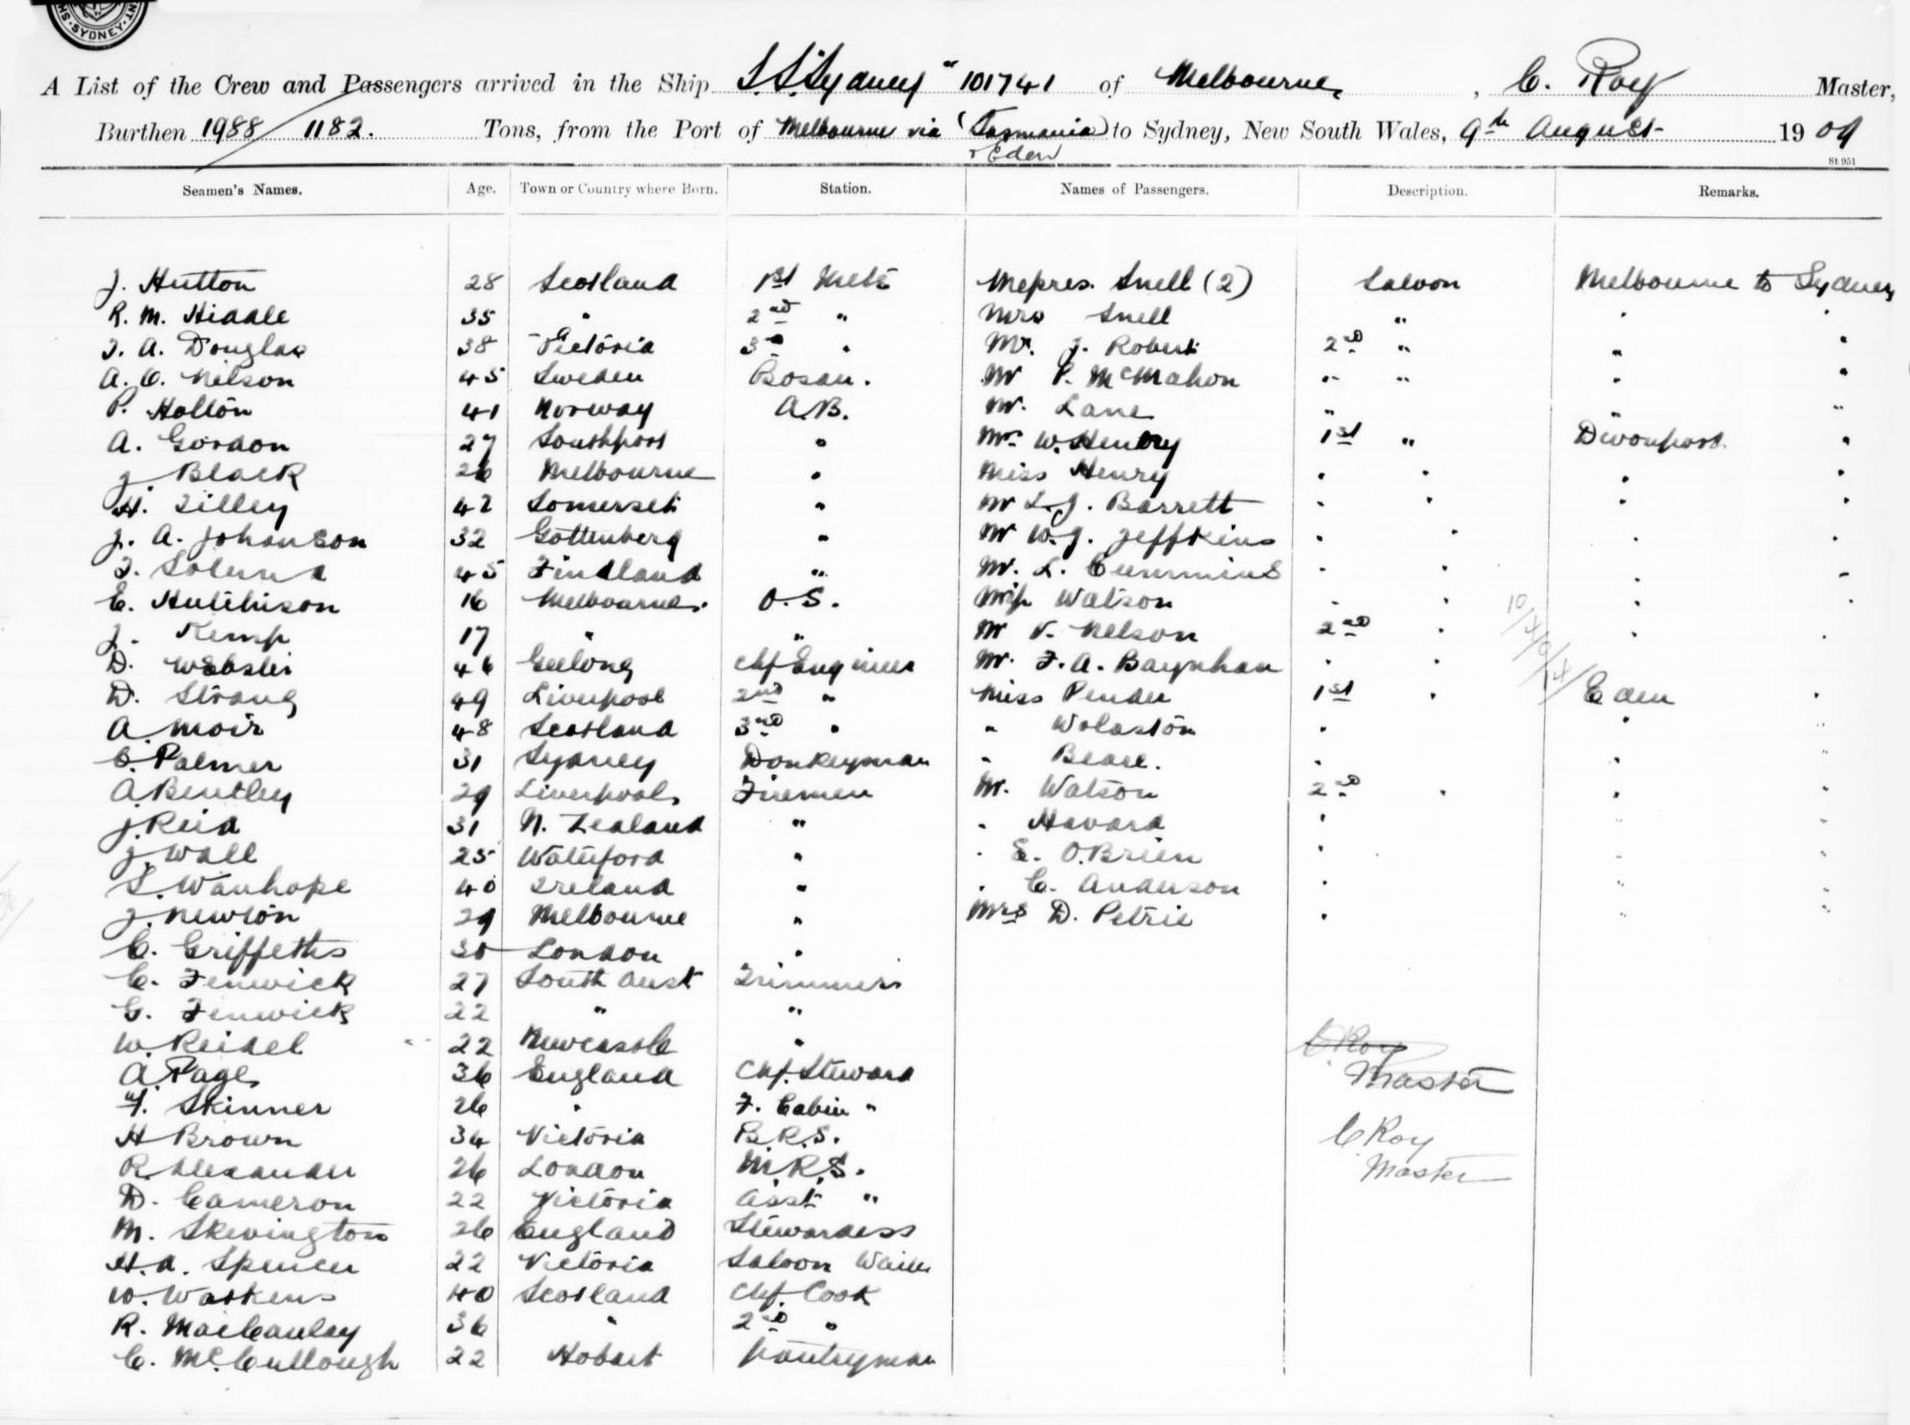 SYDNEY
A List of the Crew and Passengers arrived in the Ship S.S. "Sydney" 101741 of Melbourne, C. Roy Master,
Burthen 1988/1182. Tons, from the Port of Melbourne via (Tasmania) to Sydney, New South Wales, 9th August 1909
+ Eden
St 951
Seamen's Names. Age. Town or Country where Born. Station. Names of Passengers. Description. Remarks.
J. Hutton 28 Scotland 1st Mate Messrs. Snell (2) Saloon Melbourne to Sydney
R. M. Hiddle 35 " 2nd " Mrs Snell " " "
T. A. Douglas 38 Victoria 3rd " Mr. J. Robert 2nd " " "
A. O. Nelson 45 Sweden Bosun. Mr P. McMahon " " " "
P. Holton 41 Norway A.B. Mr. Lane " " "
A. Gordon 27 Southport " Mr. W. Henry 1st " Devonport. "
J. Black 26 Melbourne " Miss Henry " " " "
H. Tilley 42 Somerset " Mr L. J. Barrett " " " "
J. A. Johanson 32 Gottenberg " Mr W. J. Jeffkins " " " "
T. 45 Findland " Mr. L. Cummins " " " "
E. Hutchison 16 Melbourne. O.S. Miss Watson " " " "
J. Kemp 17 " " Mr V. Nelson 2nd " " "
D. Webster 46 Geelong Chf Engineer Mr. F. A. Baynham " "
D. Strang 49 Liverpool 2nd " Miss Pender 1st " Eden "
A. Moir 48 Scotland 3rd " " Wolaston " " "
C. Palmer 31 Sydney Donkeyman " Beare. " " "
A. Bentley 29 Liverpool Firemen Mr. Watson 2nd " " "
J. Reid 31 N. Zealand " " Havard " "
J. Wall 25 Waterford " " E. O.Brien " "
S. Wauhope 40 Ireland " " C. Anderson " " "
J. Newton 29 Melbourne " Mrs D. Petrie " " "
C. Griffeths 30 London "
C. Fenwick 27 South Aust Trimmers
G. Fenwick 22 " "
W. Reidel 22 Newcastle " C Roy
A. Page 36 England Chf. Steward Master
F. Skinner 26 " F. Cabin "
H Brown 34 Victoria B.R.S. C Roy
R. Alexander 26 London M.R.S. Master
D. Cameron 22 Victoria Asst "
M. Skevington 26 England Stewardess
H. A. Spencer 22 Victoria Saloon Waiter
W. Watkens 40 Scotland Chf. Cook
R. MacCaulay 36 " 2nd "
C. McCullough 22 Hobart Pantryman